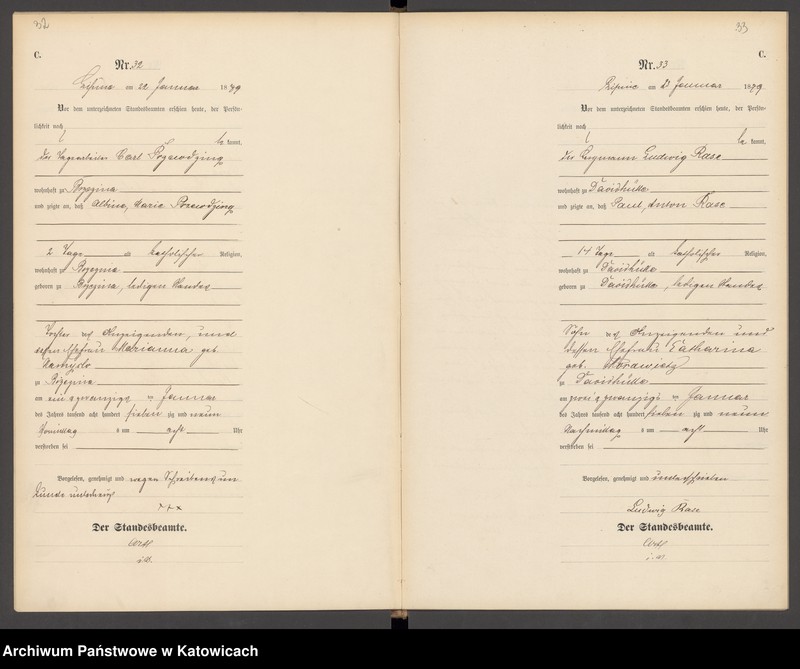 32
C.
Nr. 32
am 22 Januar 1879
Vor dem unterzeichneten Standesbeamten erschien heute, der Persön-
lichkeit nach
be kannt,
der Carl
wohnhaft zu Brzezina
und zeigte an, daß Albina, Marie
2 Tage alt katholischer Religion,
wohnhaft zu Brzezina
geboren zu Brzezina, ledigen Standes
Tochter des Anzeigenden, und
seiner Ehefrau Marianna geb.
zu Brzezina
am ein und zwanzigs ten Januar
des Jahres tausend acht hundert sieben zig und neun
Vormittags um acht Uhr
verstorben sei
Vorgelesen, genehmigt und wegen Schreibensun
kunde unterkreuzt
+++
Der Standesbeamte.
33
C.
Nr. 33
am Januar 1879
Vor dem unterzeichneten Standesbeamten erschien heute, der Persön-
lichkeit nach
be kannt,
der Bergmann Ludwig Kase
wohnhaft zu Davidhütte
und zeigte an, daß Paul, Anton Kase
14 Tage alt katholischer Religion,
wohnhaft zu Davidhütte
geboren zu Davidhütte, ledigen Standes
Sohn des Anzeigenden und
dessen Ehefrau Catharina
geb. Morawietz
zu Davidhütte
am zwei zwanzigs ten Januar
des Jahres tausend acht hundert sieben zig und neun
Nachmittags um acht Uhr
verstorben sei
Vorgelesen, genehmigt und unterschrieben
Ludwig Kase
Der Standesbeamte.
Archiwum Państwowe w Katowicach